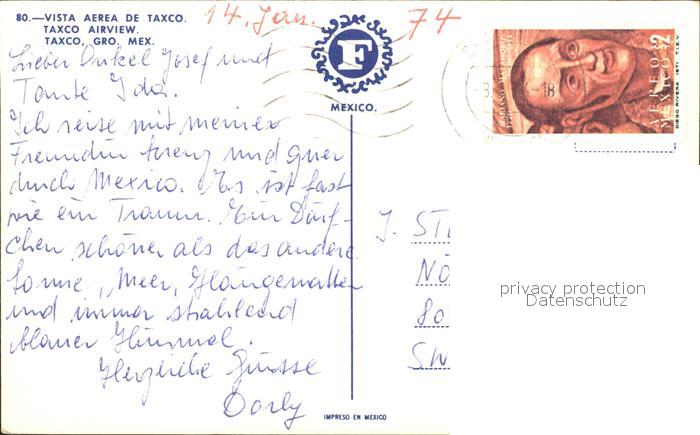 80.—VISTA AEREA DE TAXCO.
TAXCO AIRVIEW.
TAXCO, GRO. MEX.
14. Jan. 74
F
MEXICO.
Lieber Onkel Josef und
Tante Ida.
Ich reise mit meiner
Freundin kreuz und quer
durch Mexico. Es ist fast
wie ein Traum. Ein Dörf-
chen schöner als das andere
Sonne, Meer,
und immer strahlend
blauer Himmel.
Herzliche Grüsse
Dorly
IMPRESO EN MEXICO
AEREO
MEXICO $2
DIEGO RIVERA 1971 T.I.E.V.
J. ST
NÖ
80
SW
privacy protection
Datenschutz